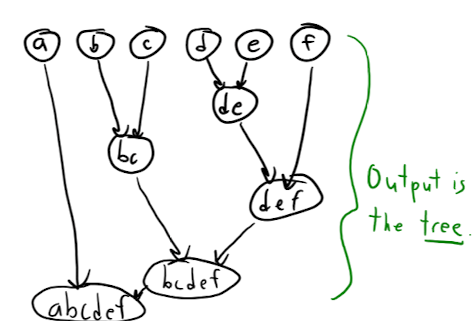 a b c d e f
de
bc
def
bcdef
abcdef
Output is
the tree.